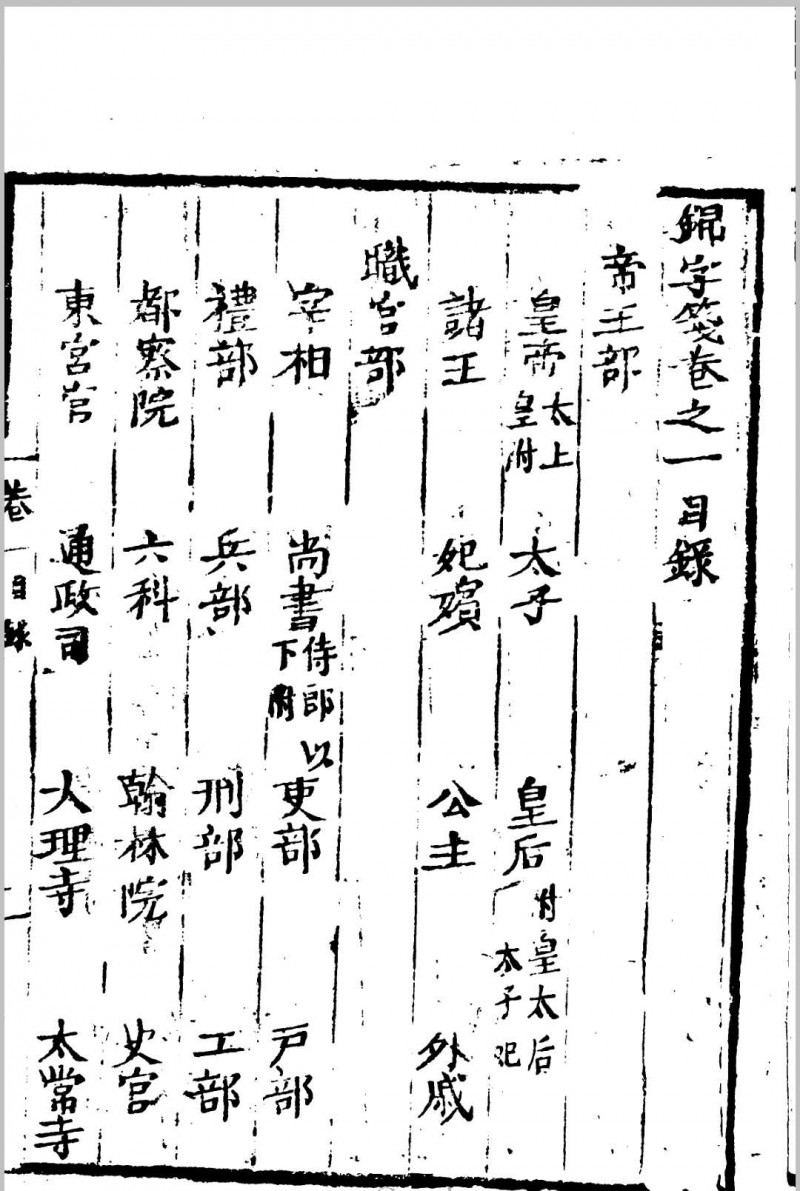 錦字箋卷之一目錄
帝王部
皇帝太上皇附 太子 皇后附皇太后太子妃
諸王 妃嬪 公主 外戚
職官部
宰相 尚書侍郎以下附 吏部 戶部
禮部 兵部 刑部 工部
都察院 六科 翰林院 史官
東宮官 通政司 大理寺 太常寺
卷一目錄 一